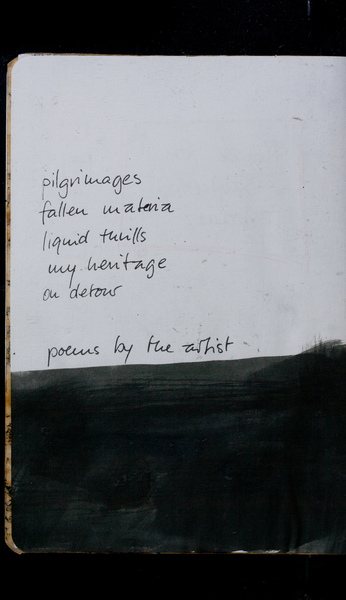 pilgrimages
fallen materia
liquid thrills
my heritage
on detour
poems by the artist